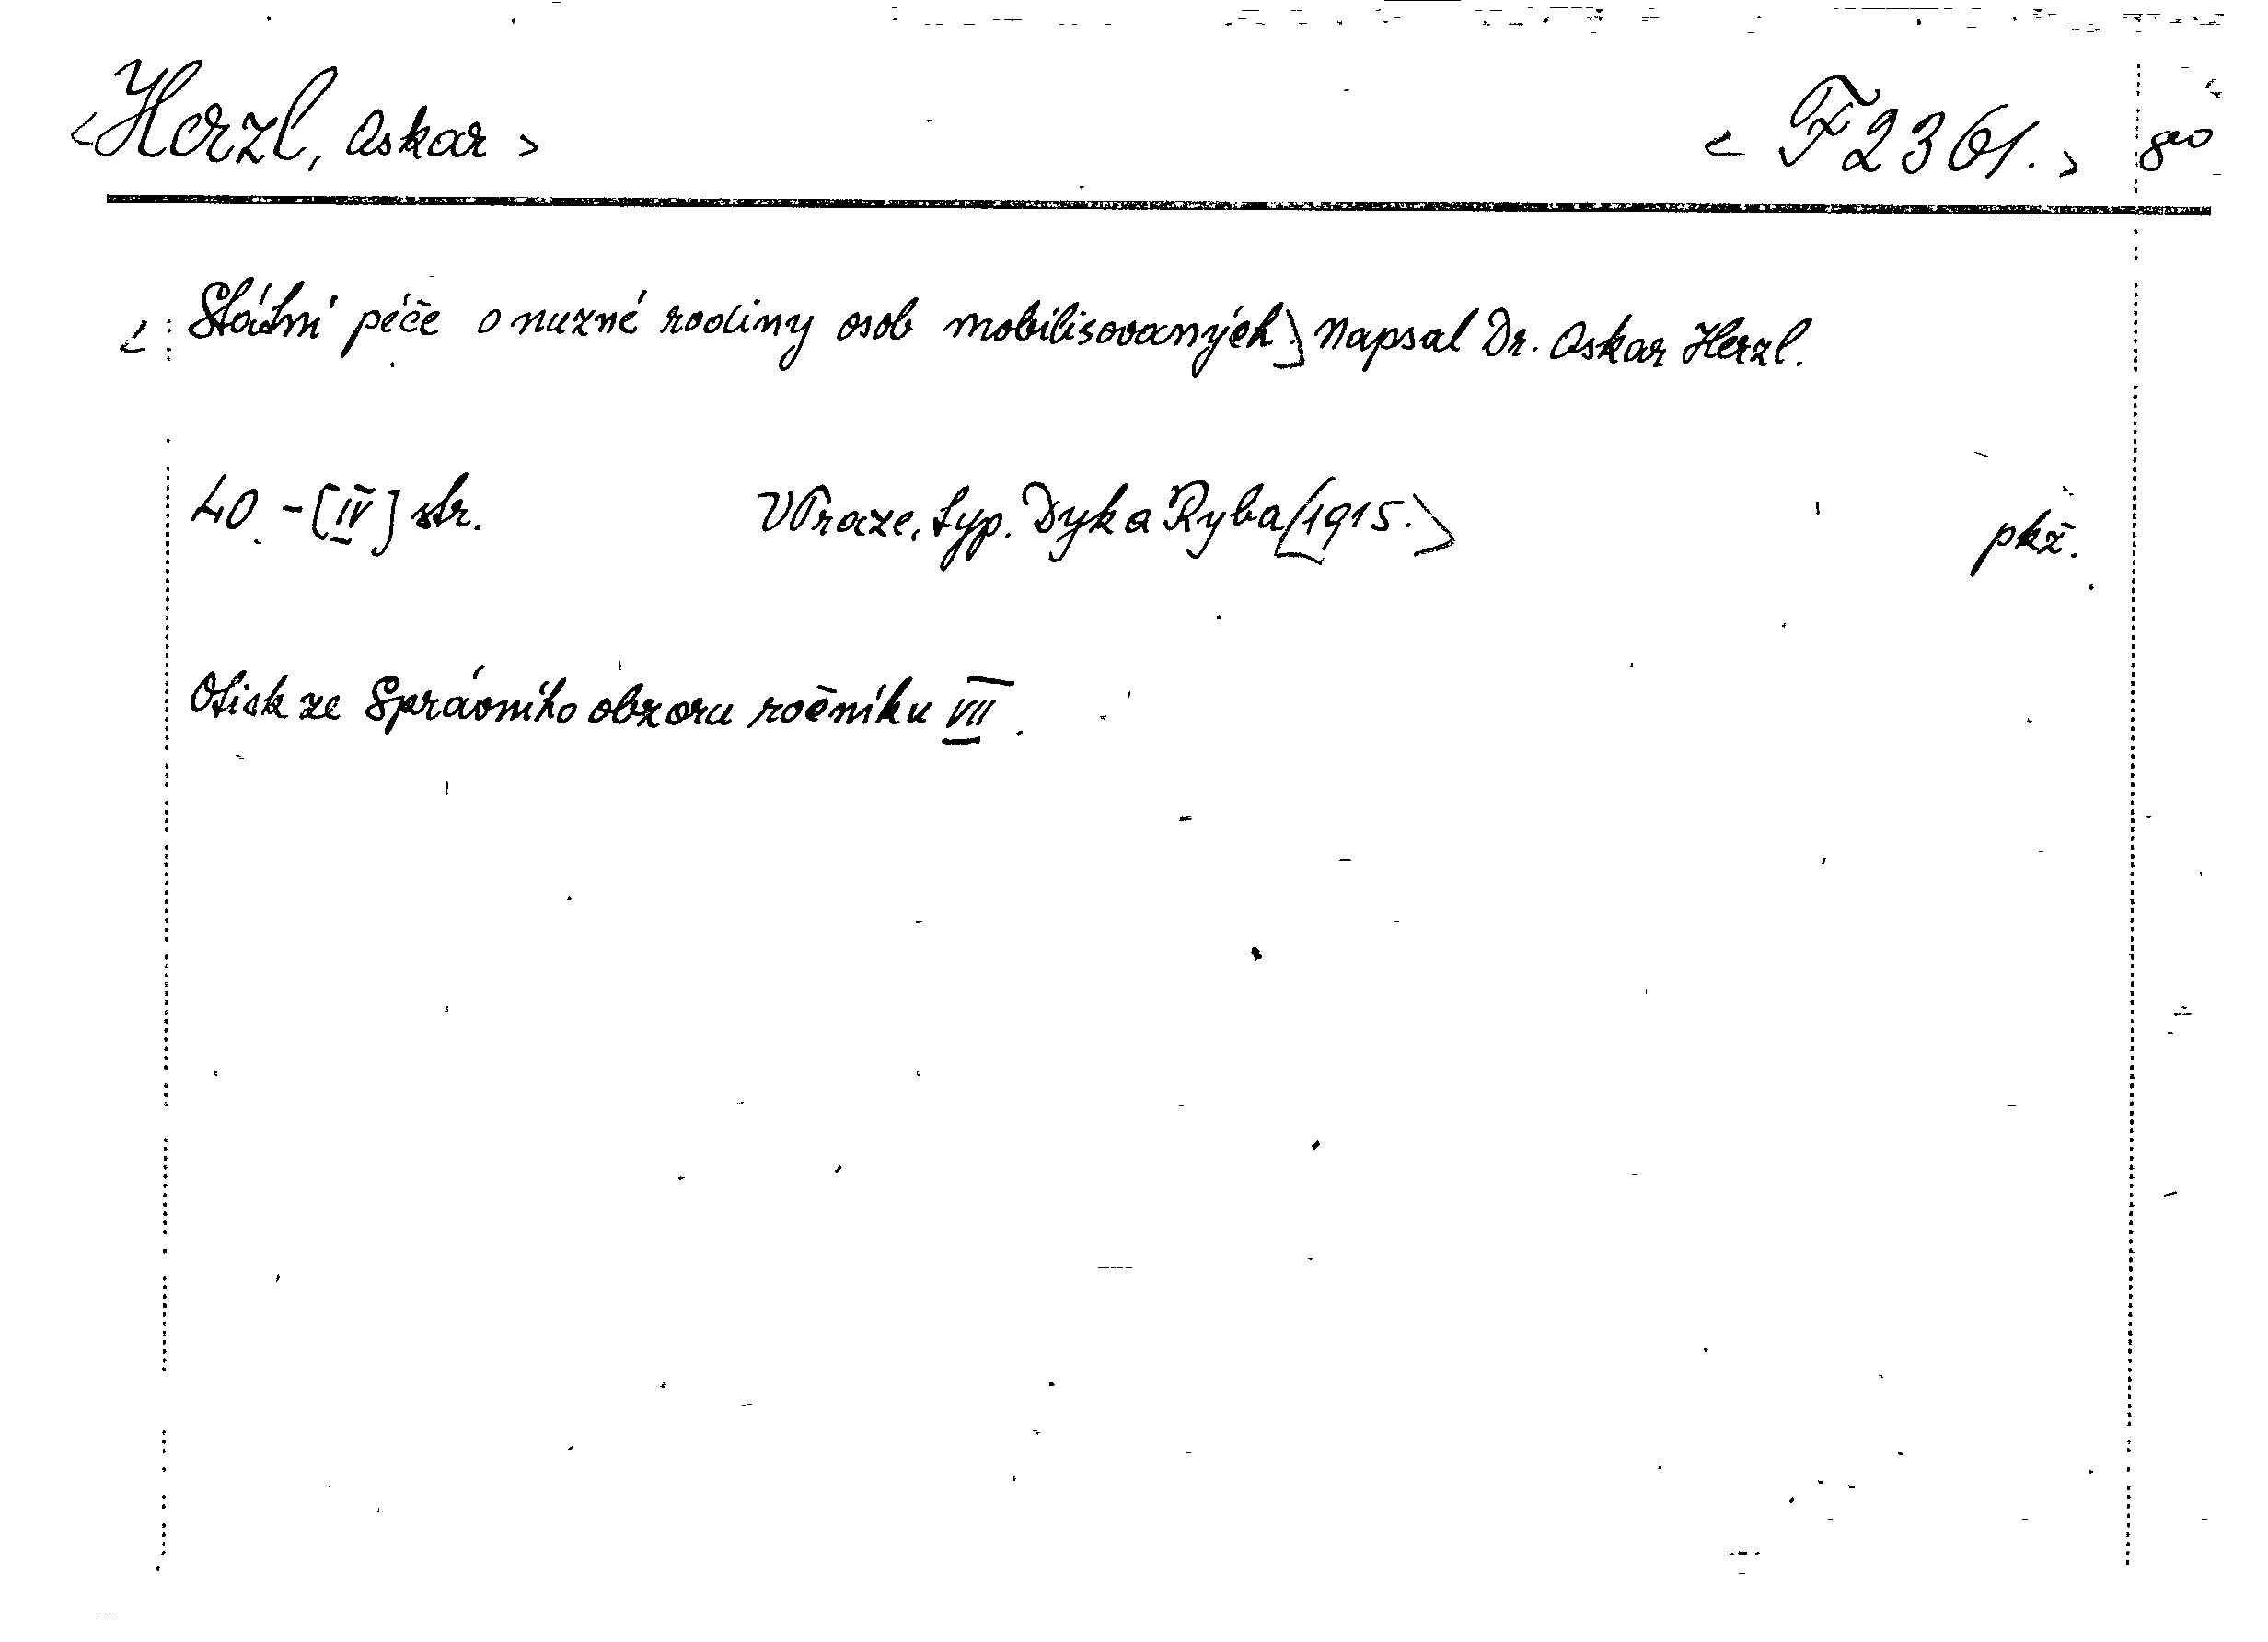 <Herzl, Oskar> <F 2361.> 8vo
<Státní péče o nuzné rodiny osob mobilisovaných> Napsal Dr. Oskar Herzl.
40 - [IV] str. V Praze, typ. Dyk a Ryba <1915.> pkž.
Otisk ze Správního obzoru ročníku VII.